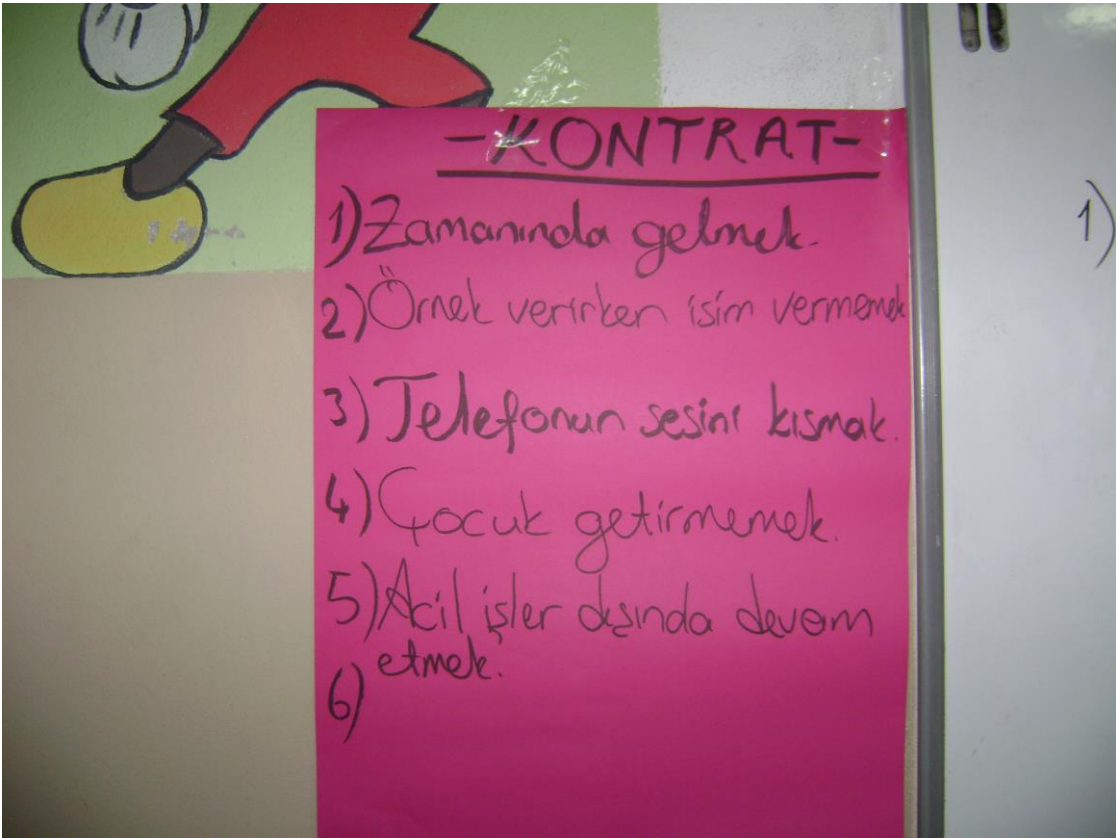 -KONTRAT-
1) Zamanında gelmek.
2) Örnek verirken isim vermemek
3) Telefonun sesini kısmak.
4) Çocuk getirmemek.
5) Acil işler dışında devam
etmek.
6)
1)